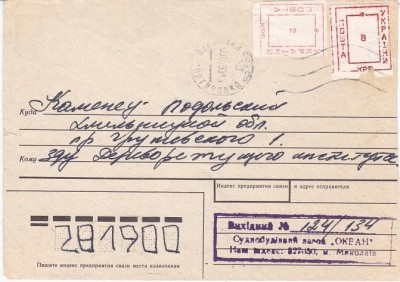 УКРАЇНИ
ПОШТА
8
КРБ
Куда Каменец-Подольский
Хмельницкой обл.
пр Грушевского 1.
Кому З-ду Дереворежущего инструмента
Индекс предприятия связи и адрес отправителя
281900
Пишите индекс предприятия связи места назначения
Вихідний № 124/134
Суднобудівний завод „ОКЕАН"
м. Миколаїв